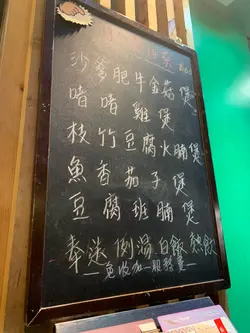 沙爹肥牛金菇煲
啫啫雞煲
枝竹豆腐火腩煲
魚香茄子煲
豆腐班腩煲
奉送例湯白飯熱飲